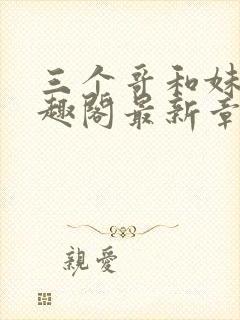 三个哥和妹
趣阁最新章
親愛